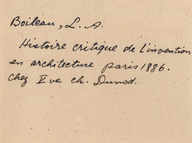 Boileau, L. A.
Histoire critique de l'invention
en architecture Paris 1886.
chez Vve ch. Dunod.